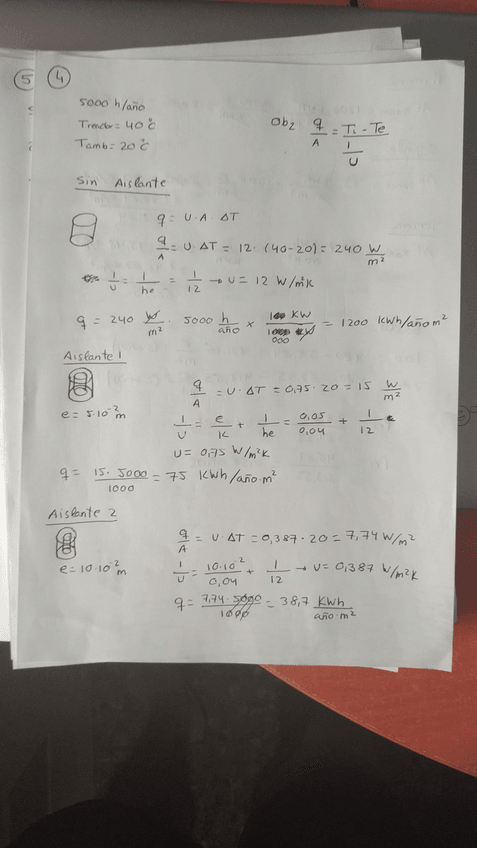 5
4
5000 h/año
Treactor = 40°C
Tamb = 20°C
q/A = Ti - Te / 1/U
Sin Aislante
q = U·A·ΔT
q/A = U·ΔT = 12·(40-20) = 240 W/m²
1/U = 1/he = 1/12 → U = 12 W/m²K
q = 240 W/m² · 5000 h/año × 1 KW/1000 W = 1200 KWh/año m²
Aislante 1
q/A = U·ΔT = 0,75·20 = 15 W/m²
e = 5·10⁻² m
1/U = e/K + 1/he = 0,05/0,04 + 1/12
U = 0,75 W/m²K
q = 15·5000/1000 = 75 KWh/año·m²
Aislante 2
q/A = U·ΔT = 0,387·20 = 7,74 W/m²
e = 10·10⁻² m
1/U = 10·10⁻²/0,04 + 1/12 → U = 0,387 W/m²K
q = 7,74·5000/1000 = 38,7 KWh/año·m²